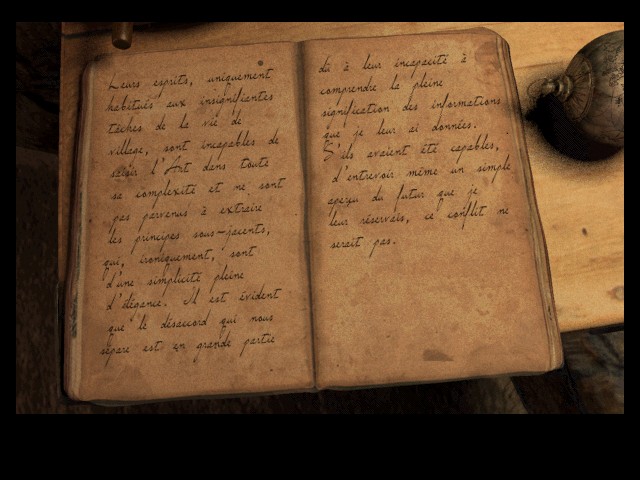 Leurs esprits, uniquement
habitués aux insignifiantes
tâches de la vie de
village, sont incapables de
saisir l'Art dans toute
sa complexité et ne sont
pas parvenus à extraire
les principes sous-jacents,
qui, ironiquement, sont
d'une simplicité pleine
d'élégance. Il est évident
que le désaccord qui nous
sépare est en grande partie
dû à leur incapacité à
comprendre la pleine
signification des informations
que je leur ai données.
S'ils avaient été capables,
d'entrevoir même un simple
aperçu du futur que je
leur réservais, ce conflit ne
serait pas.